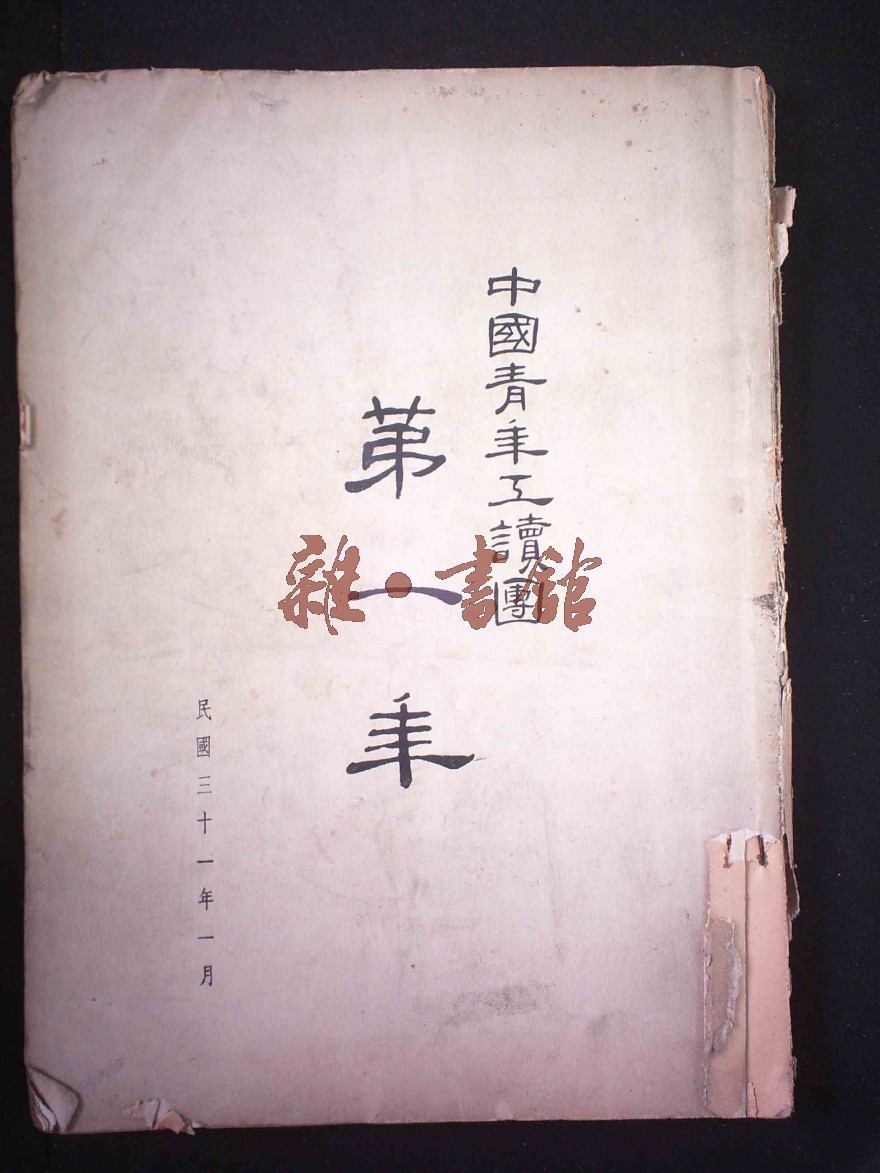 中國青年工讀團
第一年
民國三十一年一月
雜·書館